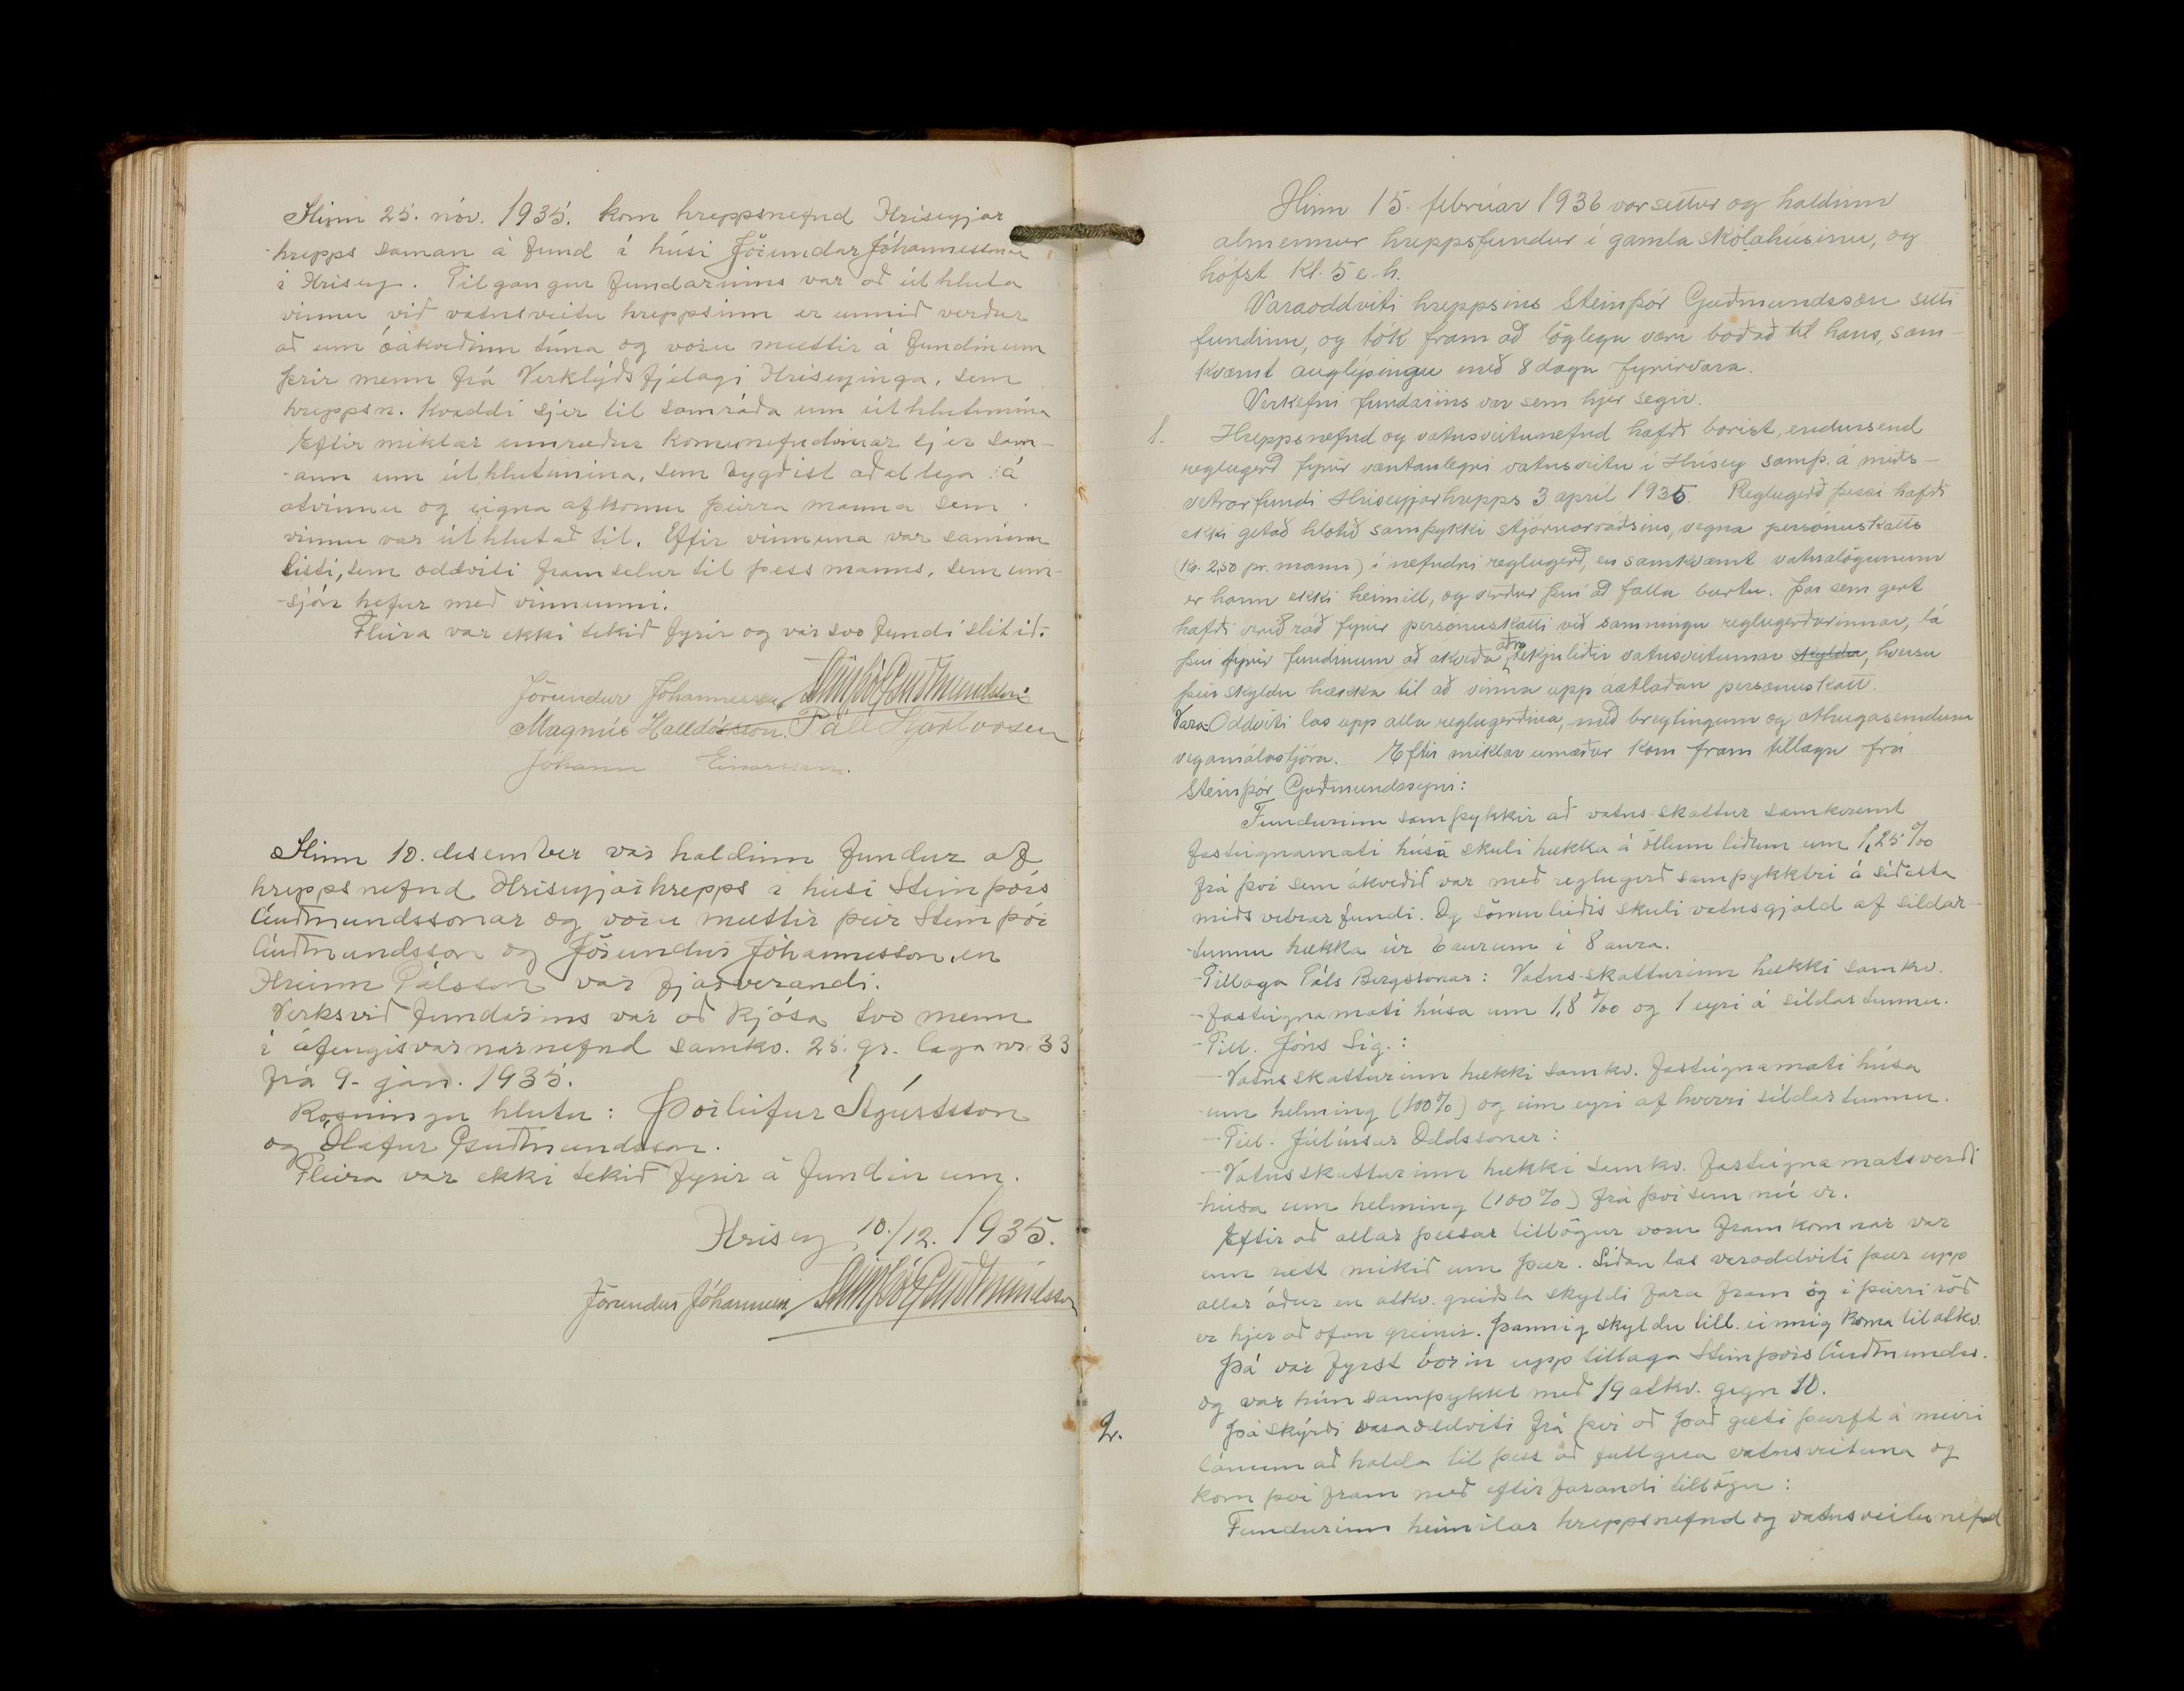 Hinn 25. nóv. 1935. kom hreppsnefnd Hríseyjar
-hrepps saman á fund í húsi Jörundar Jóhannessonar
í Hrísey. Tilgangur fundarinns var að úthluta
vinnu við vatnsveitu hreppsinn er unnið verður
að um óákveðinn tíma og voru mættir á fundinum
þrír menn frá Verklýðsfjelagi Hríseyinga, sem
hreppsn. kvaddi sjer til samráða um úthlutunina
Eftir miklar umræður komu nefndirnar sjer sam-
-ann um úthlutunina, sem bygðist aðallega á
atvinnu og eigna afkomu þeirra manna sem
vinnu var úthlutað til. Eftir vinnuna var saminn
listi, sem oddviti framselur til þess manns, sem um-
-sjón hefur með vinnunni.
Fleira var ekki tekið fyrir og var svo fundi slitið.
Jörundur Jóhannesson Steinþór Guðmundsson
Magnús Halldórsson. Páll Hjartarson
Jóhann Einarsson.
Hinn 10. desember var haldinn fundur af
hreppsnefnd Hríseyjarhrepps í húsi Steinþórs
Guðmundssonar og voru mættir þeir Steinþór
Guðmundsson og Jörundur Jóhannesson, en
Hreinn Pálsson var fjarverandi.
Verksvið fundarins var að kjósa tvo menn
í áfengisvarnarnefnd samkv. 25. gr. laga nr. 33
frá 9. jan. 1935.
Kosningu hlutu: Þorleifur Ágústsson
og Ólafur Guðmundsson.
Fleira var ekki tekið fyrir á fundinum.
Hrísey 10./12. 1935.
Jörundur Jóhannesson Steinþór Guðmundsson
Hinn 15. febrúar 1936 var settur og haldinn
almennur hreppsfundur í gamla skólahúsinu, og
hófst kl. 5 e-h.
Varaoddviti hreppsins Steinþór Guðmundsson setti
fundinn, og tók fram að löglega væri boðað til hans, sam-
kvæmt auglýsingu með 8 daga fyrirvara.
Verkefni fundarins var sem hjer segir.
1. Hreppsnefnd og vatnsveitunefnd hafði borist, endursend
reglugerð fyrir væntanlegri vatnsveitu í Hrísey samþ. á miðs-
vetrarfundi Hríseyjarhrepps 3 apríl 1935. Reglugerð þessi hafði
ekki getað hlotið samþykki stjórnarráðsins, vegna persónuskatts
(kr. 2,50 pr. mann) í nefndri reglugerð, en samkvæmt vatnalögunum
er hann ekki heimill, og verður því að falla burtu. Þar sem gert
hafði verið ráð fyrir persónuskatti við samningu reglugerðarinnar, lá
því fyrir fundinum að ákveða aðra tekjuliðir vatnsveitunnar skyldu, hversu
þeir skyldu hækka til að vinna upp áætlaðan persónuskatt.
Vara-Oddviti las upp alla reglugerðina, með breytingum og athugasemdum
vegamálastjóra. Eftir miklar umræður kom fram tillaga frá
Steinþór Guðmundssyni:
Fundurinn samþykkir að vatns-skattur samkvæmt
fasteignamati húsa skuli hækka á öllum liðum um 1,25 ‰
frá því sem ákveðið var með reglugerð samþykktri á síðasta
miðsvetrarfundi. Og sömuleiðis skuli vatnsgjald af síldar-
-tunnu hækka úr 6 aurum í 8 aura.
-Tillaga Páls Bergssonar: Vatns-skatturinn hækki samkv.
-fasteignamati húsa um 1,8 ‰ og 1 eyri á síldartunnu.
-Till. Jóns Sig.:
-Vatnsskatturinn hækki samkv. fasteignamati húsa
-um helming (100%) og eim eyri af hverri síldartunnu.
-Till. Júlíusar Oddssonar:
-Vatnsskatturinn hækki samkv. fasteignamatsverði
-húsa um helming (100%) frá því sem nú er.
Eftir að allar þessar tillögur voru framkomnar var
enn rætt mikið um þær. Síðan las varaoddviti þær upp
allar áður en atkv. greiðsla skyldi fara fram og í þeirri röð
er hjer að ofan greinir. Þannig skyldu till. einnig koma til atkv.
Þá var fyrst borin upp tillaga Steinþórs Guðmunds.
og var hún samþykkt með 19 atkv. gegn 10.
2. Þá skýrði varaoddviti frá því að það gæti þurft á meiri
lánum að halda til þess að fullgera vatnsveituna og
kom því fram með eftirfarandi tillögu:
Fundurinn heimilar hreppsnefnd og vatnsveitunefnd